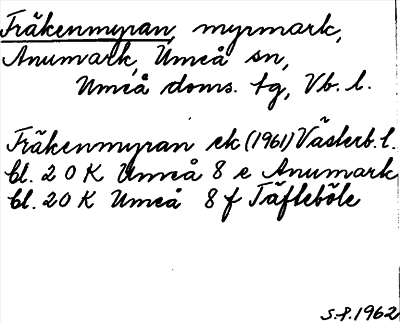 Fräkenmyran, myrmark,
Anumark, Umeå sn,
Umeå doms. tg, Vb. l.
Fräkenmyran ek (1961) Västerb. l.
bl. 20 K Umeå 8 e Anumark
bl. 20 K Umeå 8 f Täfteböle
S.F. 1962